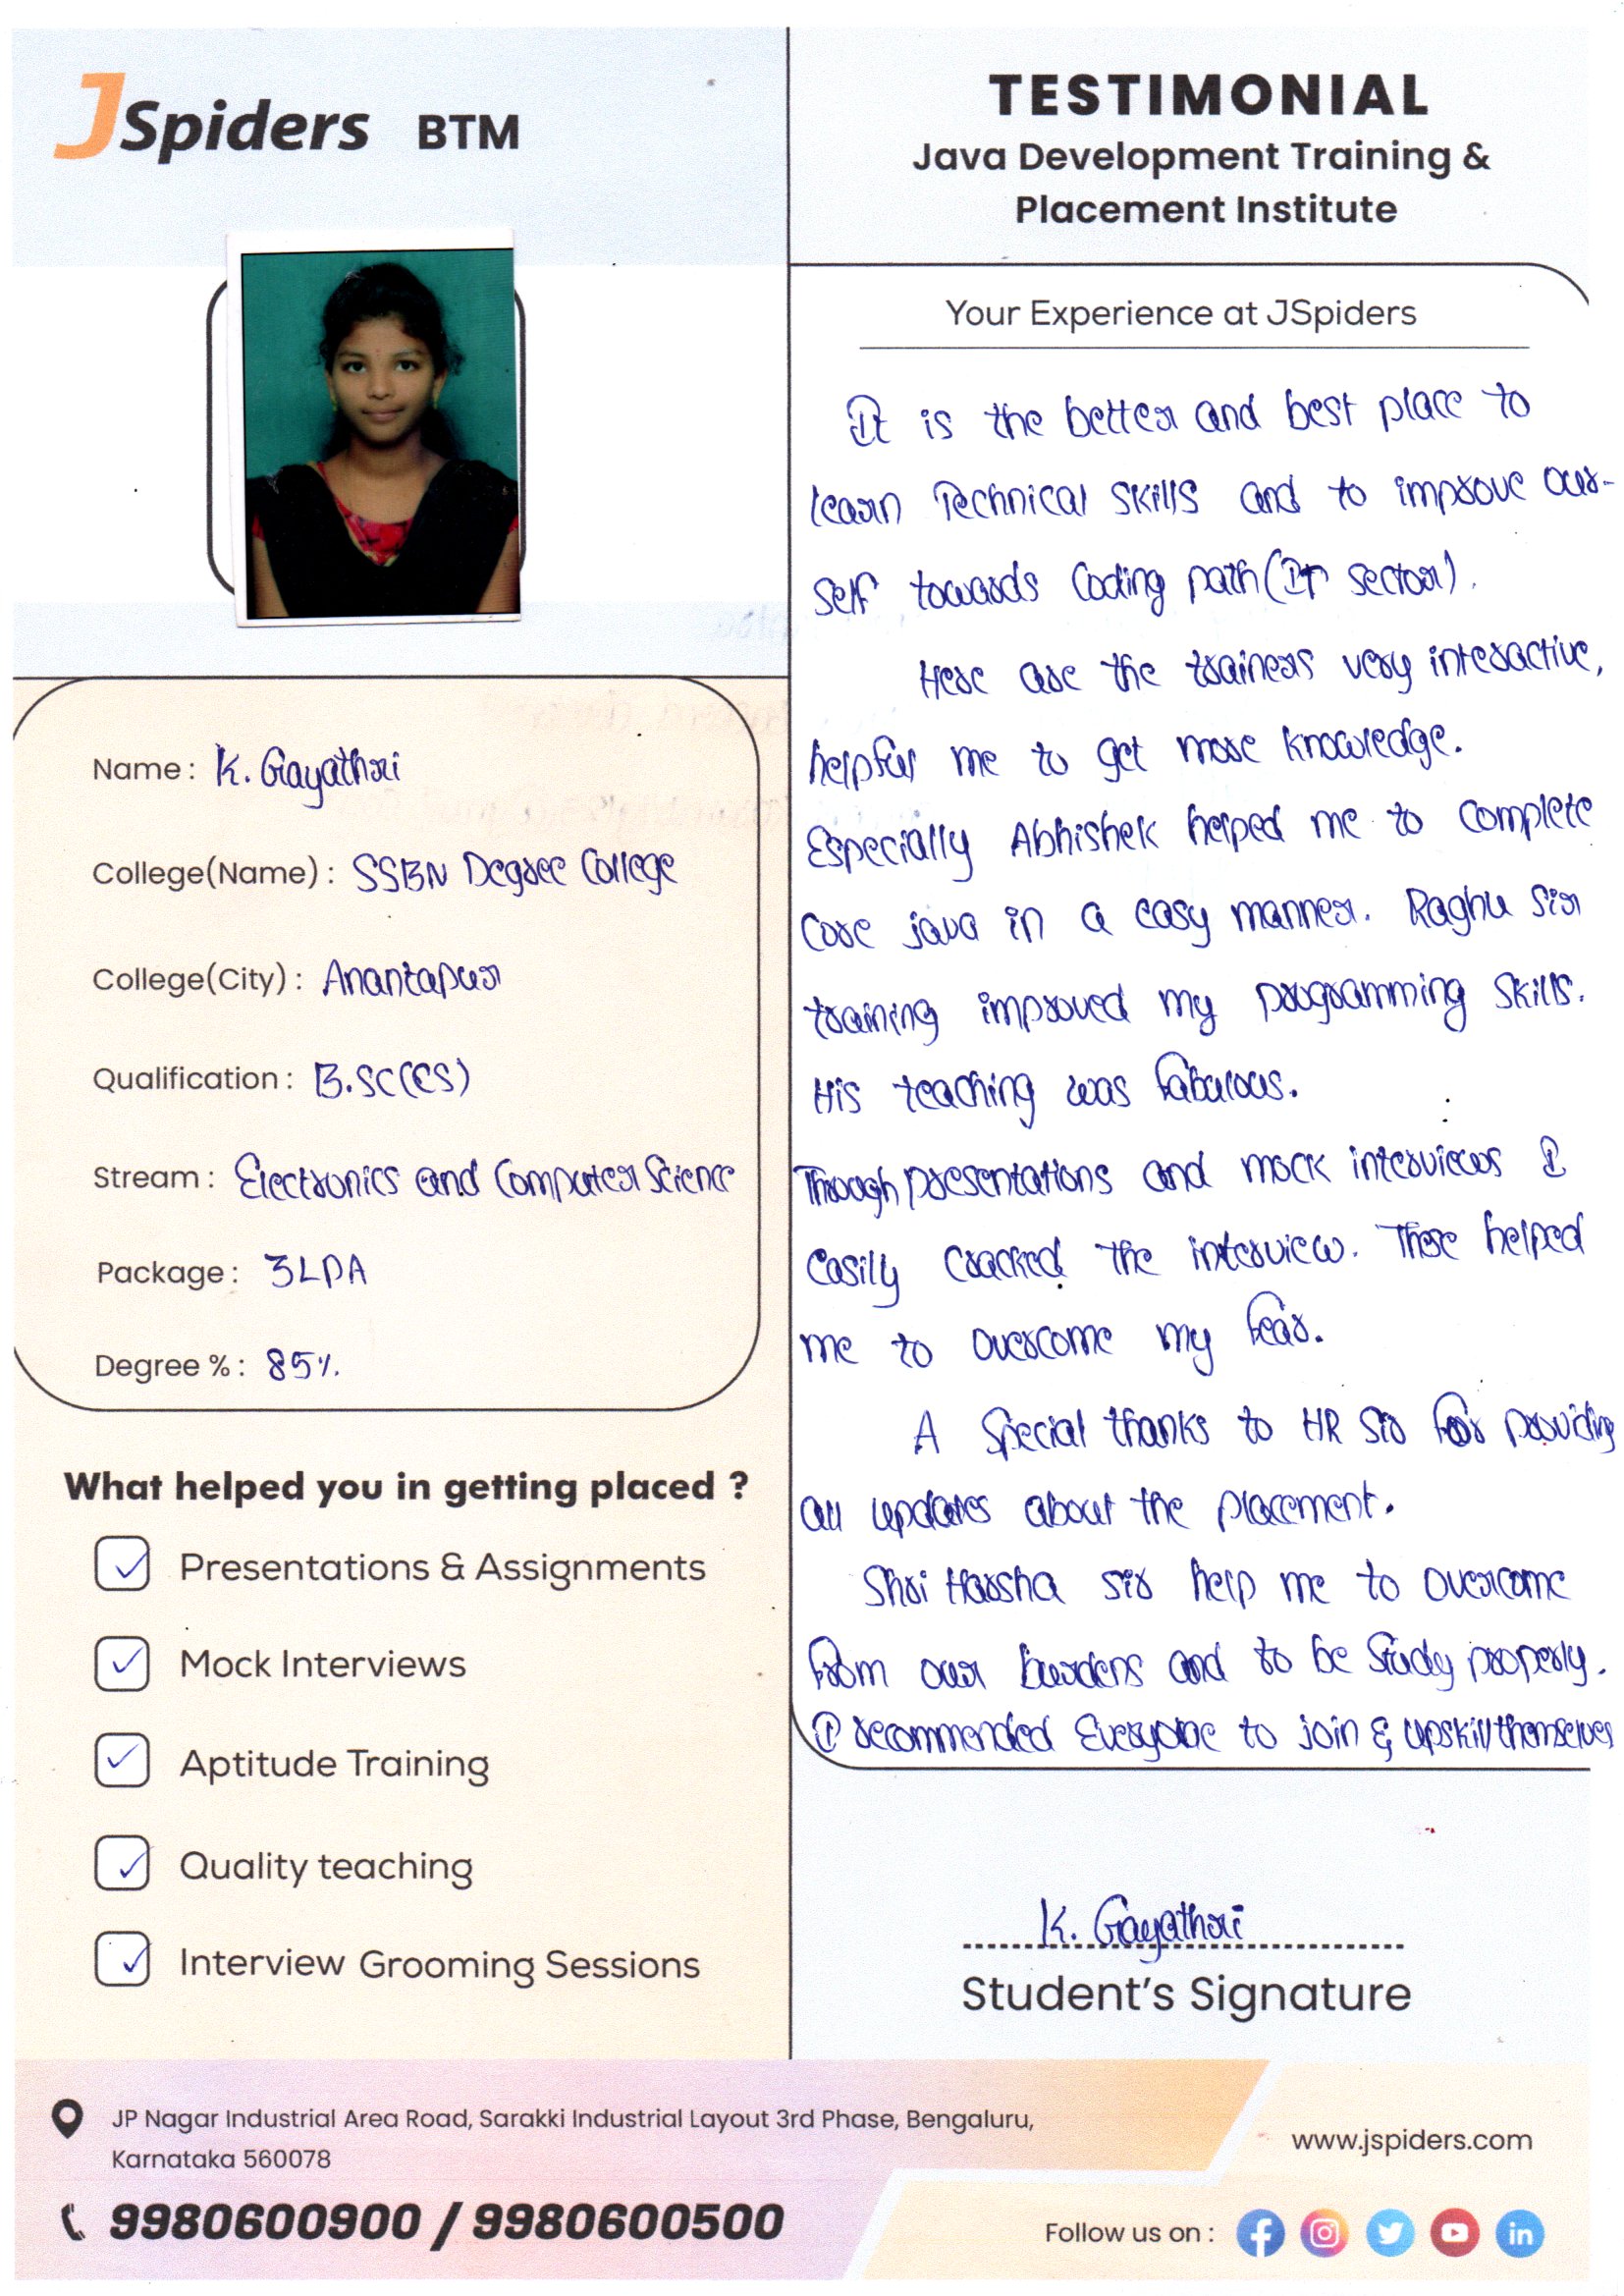 JSpiders BTM
TESTIMONIAL
Java Development Training &
Placement Institute
Name : K. Gayathri
College(Name) : SSBN Degree College
College(City) : Anantapur
Qualification : B.SC(CS)
Stream : Electronics and Computer Science
Package : 3LPA
Degree % : 85%.
What helped you in getting placed ?
Presentations & Assignments
Mock Interviews
Aptitude Training
Quality teaching
Interview Grooming Sessions
Your Experience at JSpiders
It is the better and best place to
learn Technical Skills and to improve our-
self towards Coding path (IT sector).
Here are the trainers very interactive,
helpful me to get more knowledge.
Especially Abhishek helped me to complete
Core java in a easy manner. Raghu Sir
training improved my programming skills.
His teaching was fabulous.
Through presentations and mock interviews I
Easily Cracked the interview. These helped
me to overcome my fear.
A Special thanks to HR Sir for providing
all updates about the placement.
Shri Harsha sir help me to overcome
from our burdens and to be study properly.
I recommended Everyone to join & upskill themselves
K. Gayathri
Student's Signature
JP Nagar Industrial Area Road, Sarakki Industrial Layout 3rd Phase, Bengaluru,
Karnataka 560078
9980600900 / 9980600500
www.jspiders.com
Follow us on :